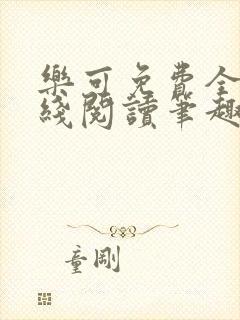 樂可免費全
綫閱讀筆趣
童剛